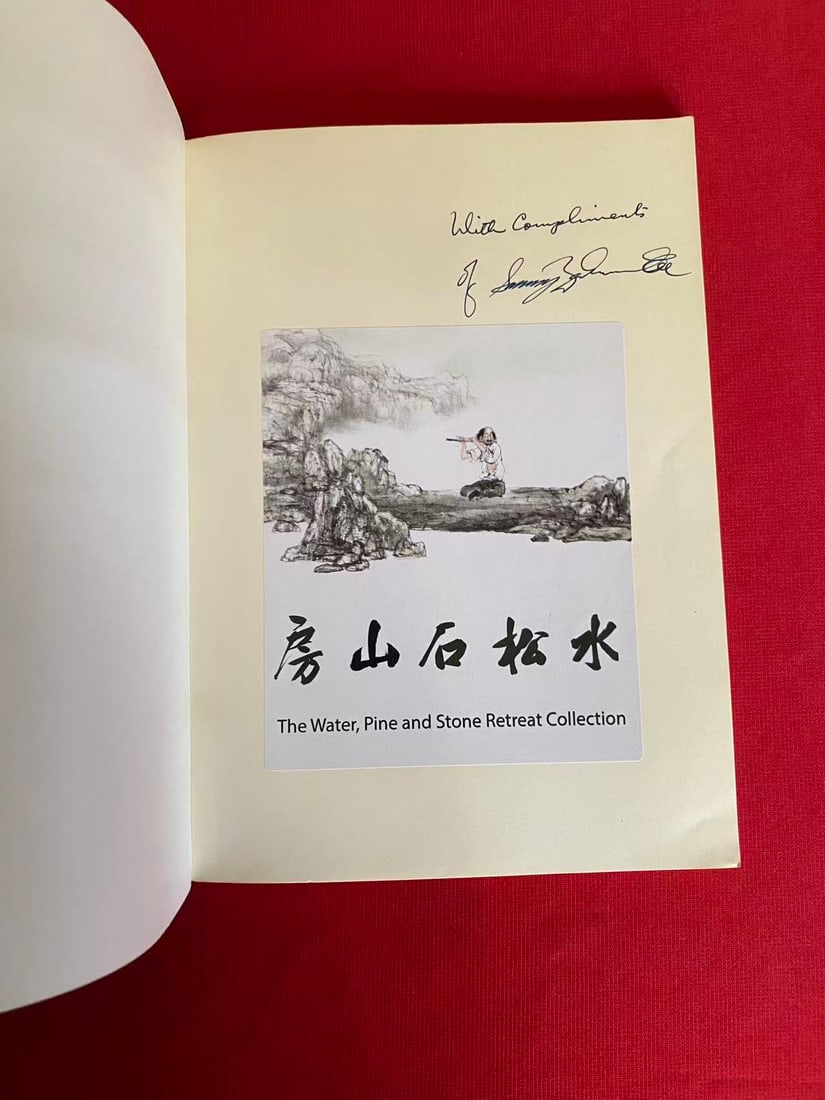 With Compliments
of Sammy Lee
水松石山房
The Water, Pine and Stone Retreat Collection